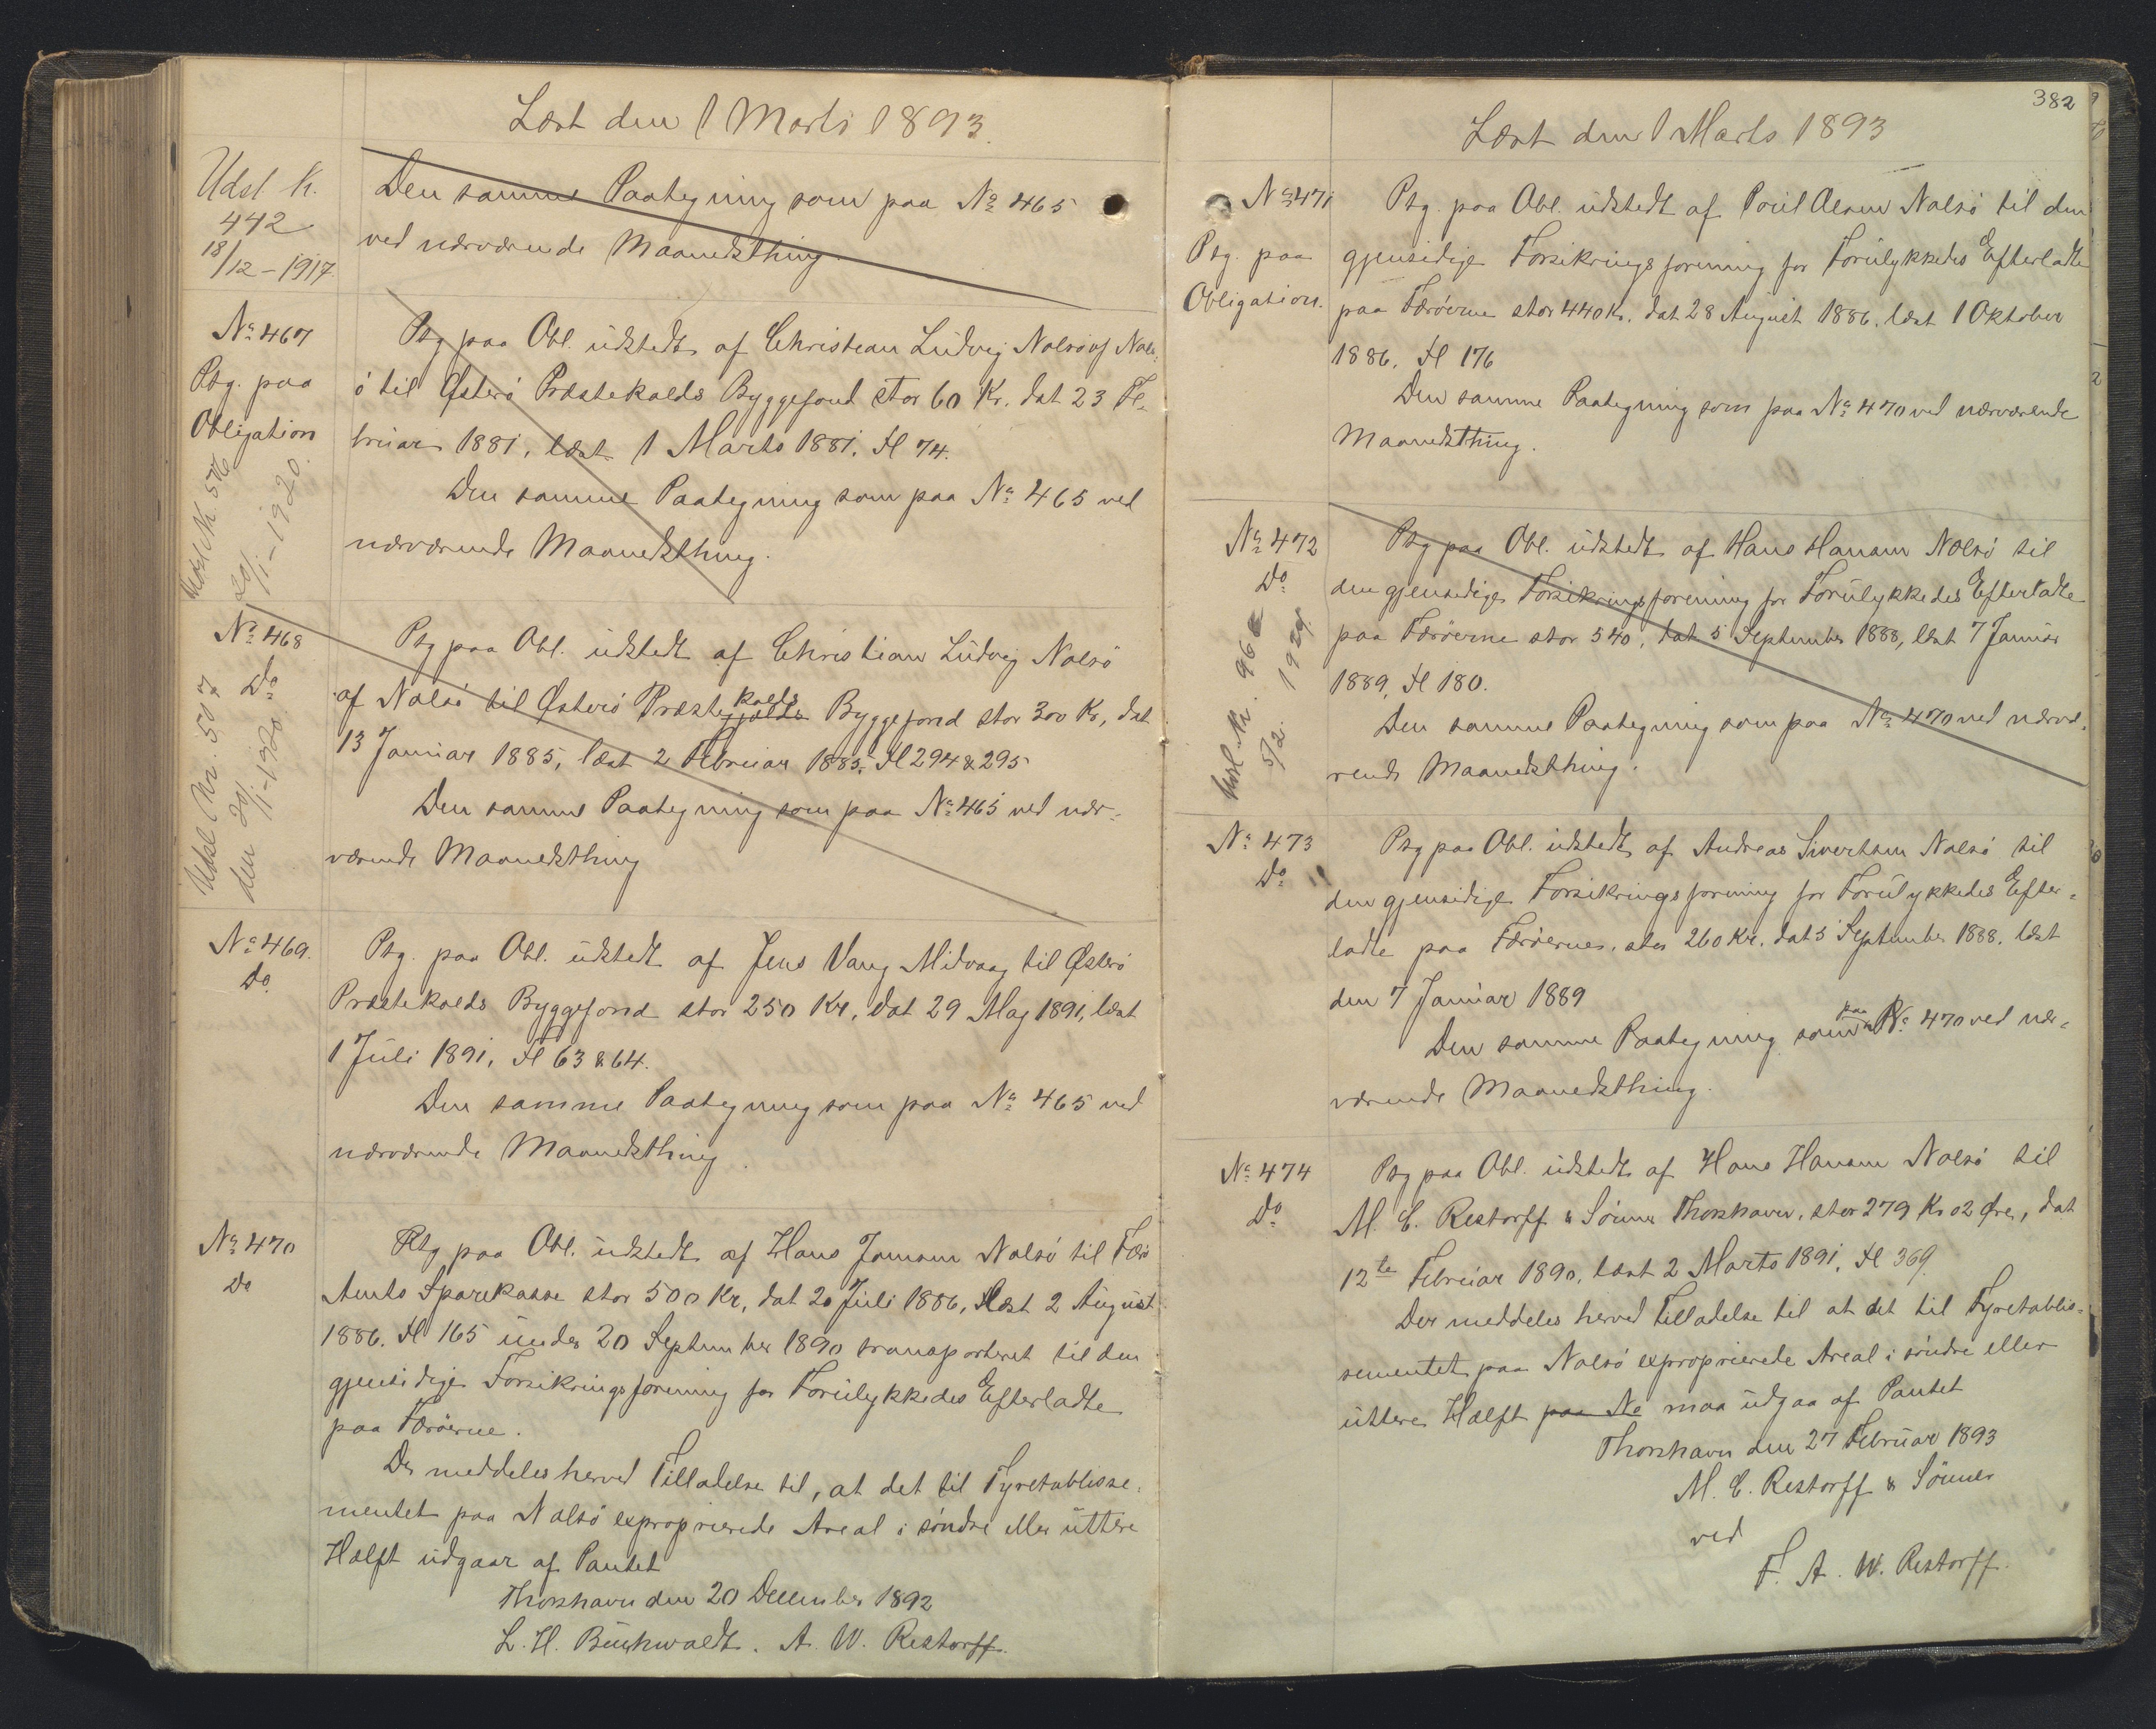 Læst den 1 Marts 1893.
Udsl K.
442
18/12-1917.
Den samme Paategning som paa No 465
ved nærværende Maanedsthing.
No 467
Ptg. paa
Obligation
20/1-1920.
Ptg paa Obl. udstedt af Christian Ludvig Nolsø af Nols-
ø til Østerø Præstekalds Byggefond stor 60 Kr. dat 23 Fe-
bruar 1881, læst 1 Marts 1881. Fl 74.
Den samme Paategning som paa No 465 ved
nærværende Maanedsthing.
No 468
Do
Udsl Nr. 507
den 20/1-1920.
Ptg paa Obl. udstedt af Christian Ludvig Nolsø
af Nolsø til Østerø Præstekalds Byggefond stor 300 Kr, dat
13 Januar 1885, læst 2 Februar 1885, Fl 294 & 295
Den samme Paategning som paa No 465 ved nær-
værende Maanedsthing
No 469.
Do.
Ptg. paa Obl. udstedt af Jens Vang Midvaag til Østerø
Præstekalds Byggefond stor 250 Kr, dat 29 Maj 1891, læst
1 Juli 1891, Fl 63 & 64.
Den samme Paategning som paa No 465 ved
nærværende Maanedsthing.
No 470
Do
Ptg paa Obl. udstedt af Hans Jansen Nolsø til Færø
Amts Sparekasse stor 500 Kr, dat 20 Juli 1886, læst 2 August
1886. Fl 165 under 20 September 1890 transporteret til den
gjensidige Forsikringsforening for Forulykkedes Efterladte
paa Færøerne.
Der meddeles herved Tilladelse til, at det til Fyretablisse-
mentet paa Nolsø exproprierede Areal i søndre eller uttere
Halft udgaar af Pantet
Thorshavn den 20 December 1892
L. H. Buchwaldt. A. W. Restorff.
382
Læst den 1 Marts 1893
No 471
Ptg. paa
Obligation.
Ptg. paa Obl. udstedt af Poul Olsen Nolsø til den
gjensidige Forsikringsforening for Forulykkedes Efterladte
paa Færøerne stor 440 Kr. dat 28 August 1886. læst 1 Oktober
1886. Fl 176
Den samme Paategning som paa No 470 ved nærværende
Maanedsthing.
No 472
Do
Udsl. Nr. 962
5/2 1929.
Ptg paa Obl. udstedt af Hans Hansen Nolsø til
den gjensidige Forsikringsforening for Forulykkedes Efterladte
paa Færøerne stor 540, dat 5 September 1888, læst 7 Januar
1889, Fl 180.
Den samme Paategning som paa No 470 ved nærvæ-
rende Maanedsthing.
No 473
Do
Ptg paa Obl. udstedt af Andreas Sivertsen Nolsø til
den gjensidige Forsikringsforening for Forulykkedes Efter-
ladte paa Færøernes. stor 260 Kr. dat 5 September 1888. læst
den 7 Januar 1889
Den samme Paategning som paa No 470 ved nær-
værende Maanedsthing.
No 474
Do
Ptg paa Obl. udstedt af Hans Hansen Nolsø til
M. C. Restorff & Sønner Thorshavn, stor 279 Kr 02 Øre, dat
12te Februar 1890, læst 2 Marts 1891, Fl 369.
Der meddeles herved Tilladelse til at det til Fyretablis-
sementet paa Nolsø exproprierede Areal i søndre eller
uttere Halft paa No maa udgaa af Pantet
Thorshavn den 27 Februar 1893
M. C. Restorff & Sønner
ved
F. A. W. Restorff.